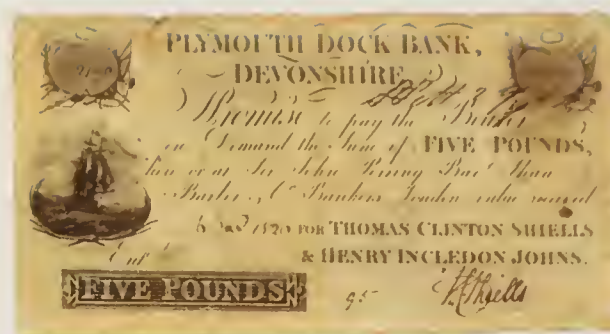 PLYMOUTH DOCK BANK,
DEVONSHIRE
I Promise to pay the Bearer
on Demand the Sum of FIVE POUNDS,
here or at Sir John Bart
& Co Bankers London value received
FOR THOMAS CLINTON SHIELLS
& HENRY INCLEDON JOHNS.
Ent
FIVE POUNDS
95
Shiells